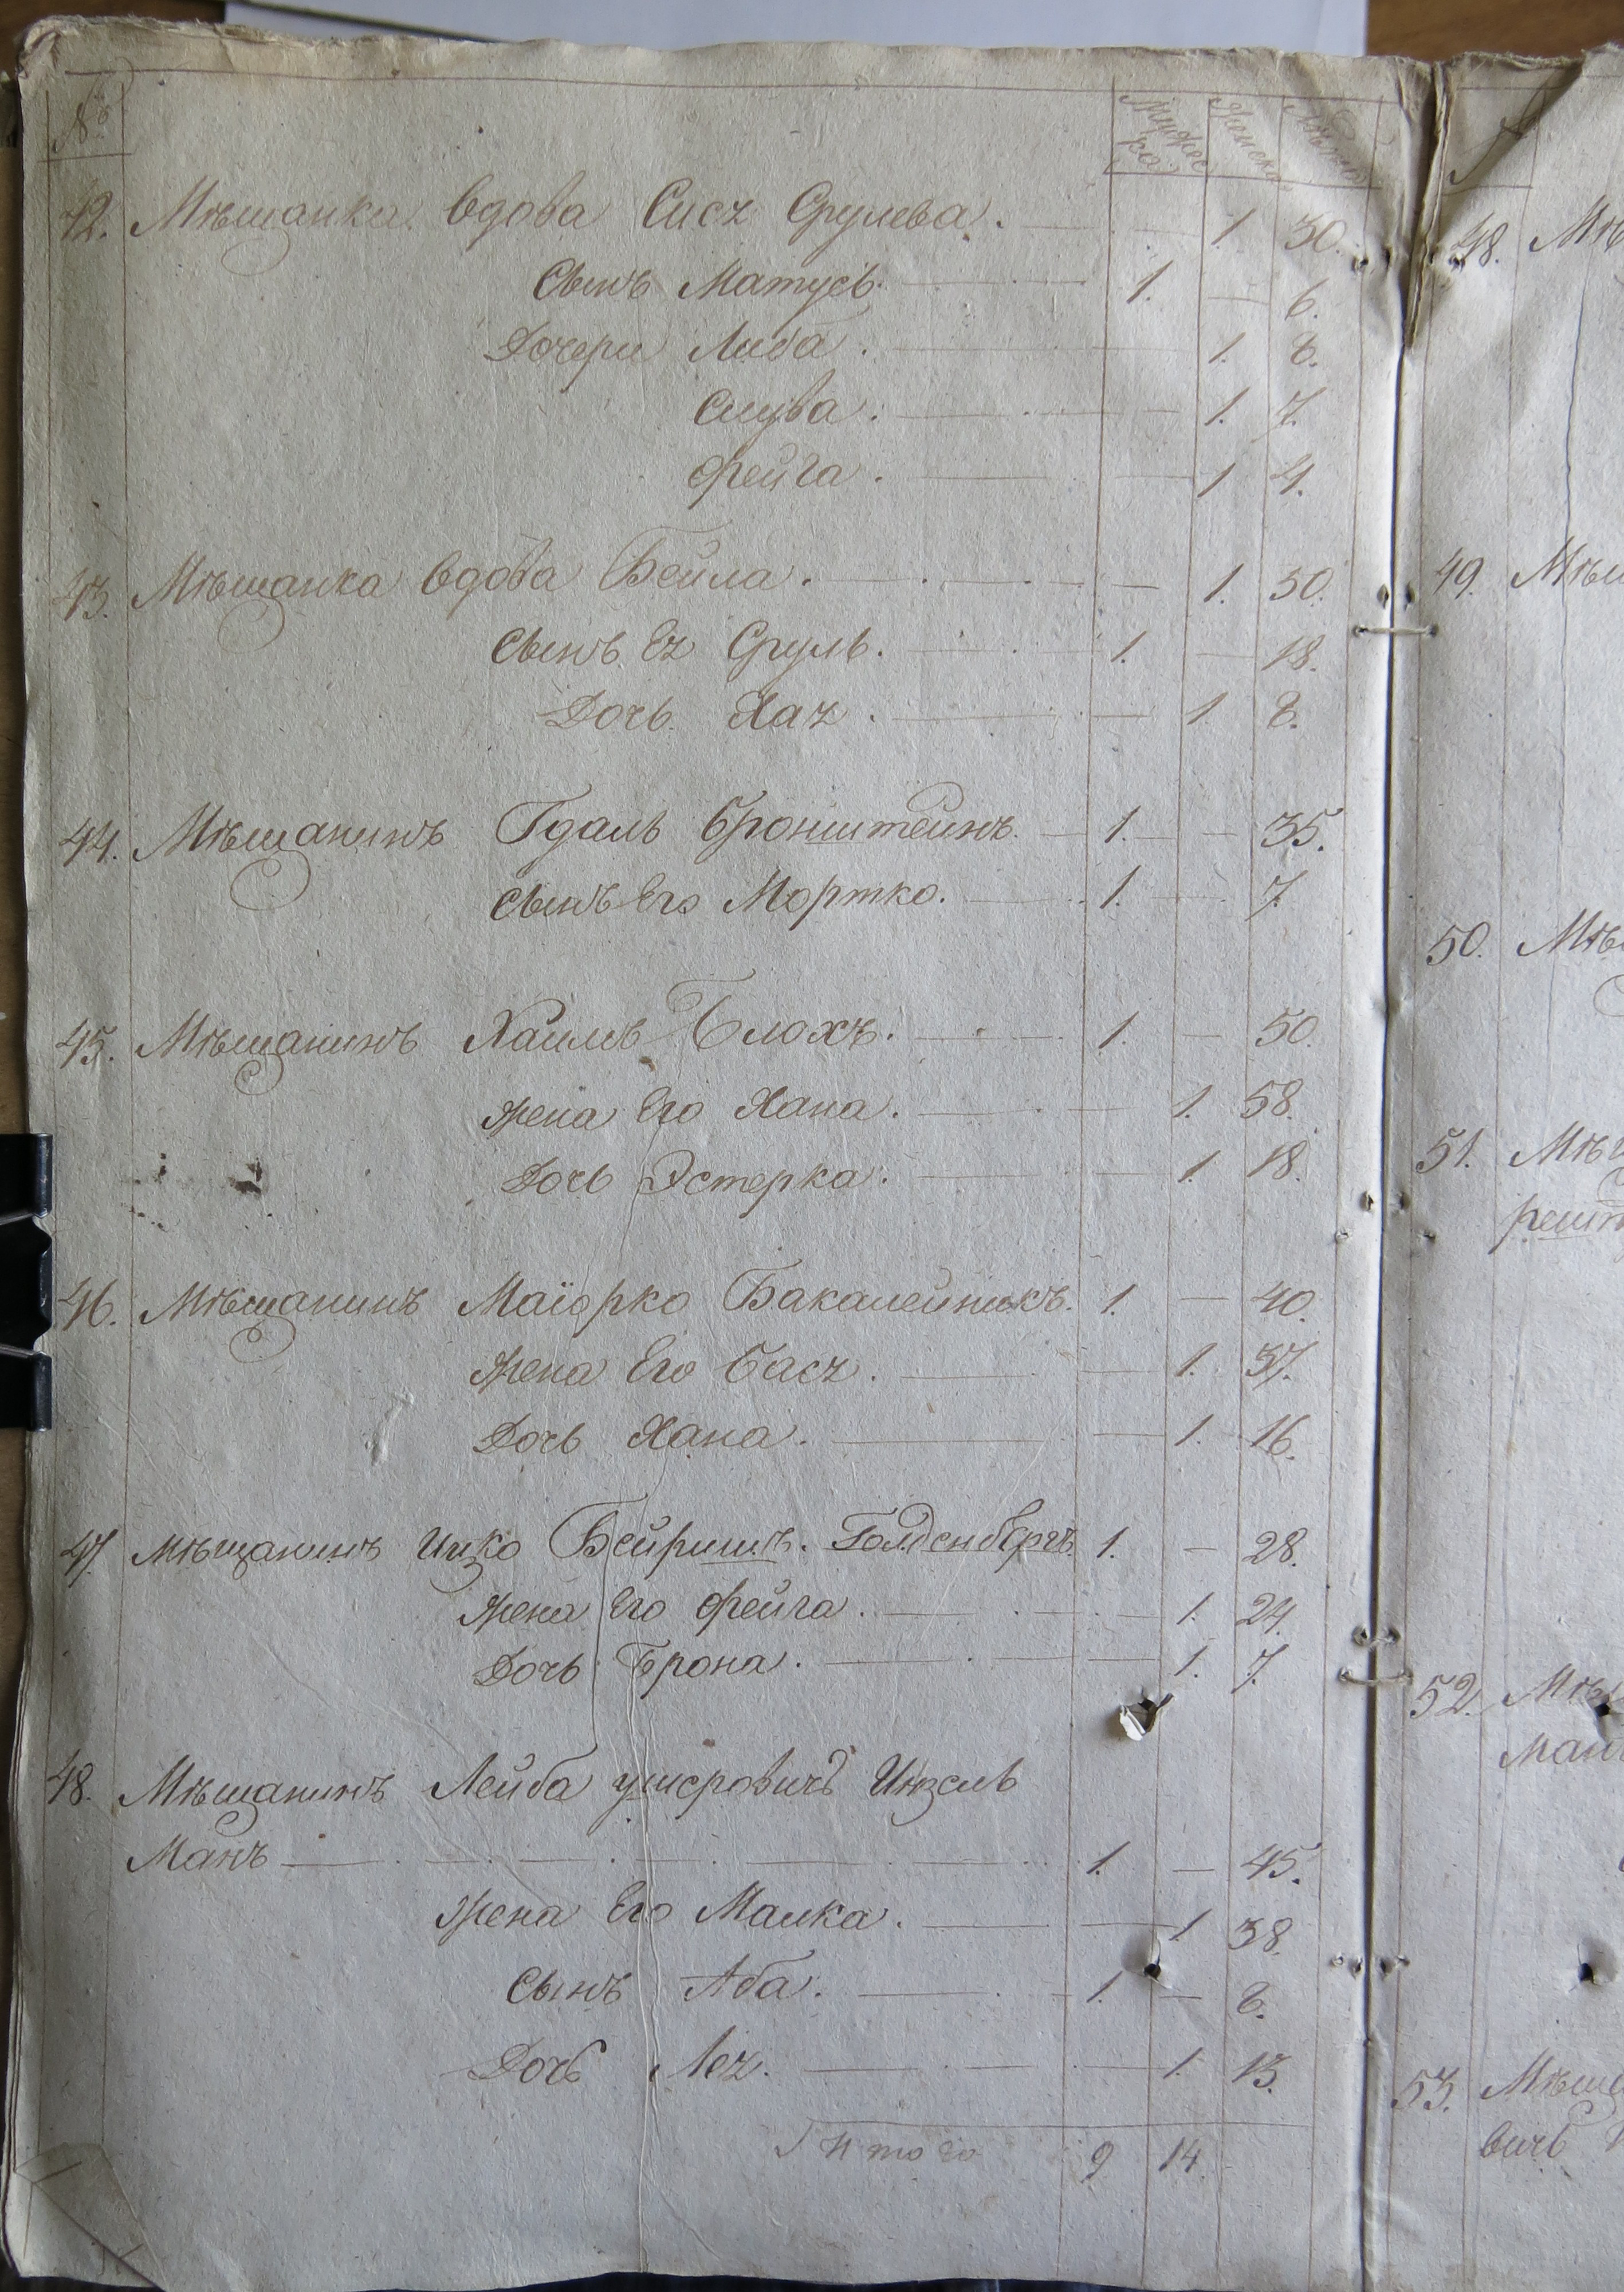 № Мужеска Женска Лѣты
42. Мѣщанка вдова Сися Срулева. — 1. 30.
Сынъ Матусь. 1. — 6.
Дочери Либа. — 1. 8.
Слува. — 1. 7.
Фейга. — 1 4.
43. Мѣщанка вдова Бейла. — 1. 50.
Сынъ Ея Сруль. 1. — 18.
Дочь Хая. — 1. 8.
44. Мѣщанинъ Гдаль Бронштейнъ. 1. — 35.
Сынъ Его Мортко. 1. — 7.
45. Мѣщанинъ Хаимъ Блохъ. 1. — 50.
Жена Его Хана. — 1. 58.
Дочь Эстерка. — 1. 18.
46. Мѣщанинъ Маіорко Бакалейникъ. 1. — 40.
Жена Его Бася. — 1. 37.
Дочь Хана. — 1. 16.
47. Мѣщанинъ Ицко Бейришъ. Голденбергъ 1. — 28.
Жена Его Фейга. — 1. 24.
Дочь Брона. — 1. 7.
48. Мѣщанинъ Лейба Ушеровичъ Инзель
Манъ — 1. — 45.
Жена Его Малка. — 1. 38.
Сынъ Аба. — 1. — 8.
Дочь Лея. — 1. 13.
Итого 9 14.
48. Мѣ
49. Мѣщ
50. Мѣ
51. Мѣщ
решт
52. Мѣщ
ман
53. Мѣще
вичъ